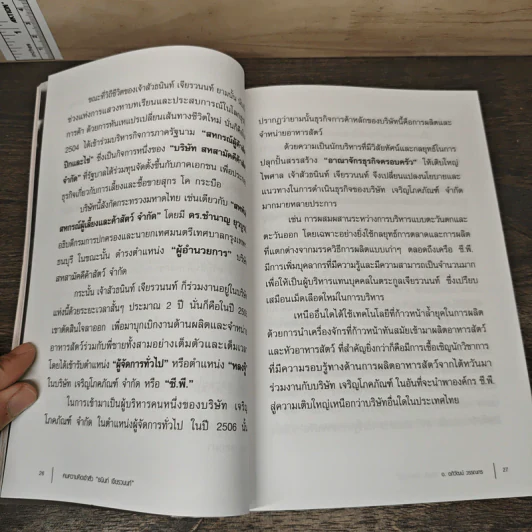 ขณะที่วิถีชีวิตของเจ้าสัวธนินท์ เจียรวนนท์ ยามนั้น
ช่วงแห่งการแสวงหาบทเรียนและประสบการณ์ในโลกธุรกิจ
การค้า ด้วยการหันเหแปรเปลี่ยนเส้นทางชีวิตใหม่ นั่นก็คือ
2504 ได้เข้าร่วมบริหารกิจการภาครัฐนาม "สหกรณ์ผู้ค้า
ปึกและไข่" ซึ่งเป็นกิจการหนึ่งของ "บริษัท สหสามัคคีค้าสัตว์
จำกัด" ที่รัฐบาลได้ร่วมทุนจัดตั้งขึ้นกับภาคเอกชน เพื่อประกอบ
ธุรกิจเกี่ยวกับการเลี้ยงและซื้อขายสุกร โค กระบือ
บริษัทนี้สังกัดกระทรวงมหาดไทย เช่นเดียวกับ
สหกรณ์ผู้เลี้ยงและค้าสัตว์ จำกัด" โดยมี ดร.ชำนาญ
อธิบดีกรมการปกครองและนายกเทศมนตรีเทศบาลกรุงเทพ
ธนบุรี ในขณะนั้น ดำรงตำแหน่ง "ผู้อำนวยการ"
สหสามัคคีค้าสัตว์ จำกัด
กระนั้น เจ้าสัวธนินท์ เจียรวนนท์ ก็ร่วมงานอยู่ใน
แห่งนี้ด้วยระยะเวลาสั้นๆ ประมาณ 2 ปี นั่นก็คือในปี
เขาตัดสินใจลาออก เพื่อมาบุกเบิกงานด้านผลิตและจำหน่าย
อาหารสัตว์ร่วมกับพี่ชายทั้งสามอย่างเต็มตัวและเต็มเวลา
โดยได้เข้ารับตำแหน่ง "ผู้จัดการทั่วไป" หรือตำแหน่ง
ในบริษัท เจริญโภคภัณฑ์ จำกัด หรือ "ซี.พี."
ในการเข้ามาเป็นผู้บริหารคนหนึ่งของบริษัท เจริญ
โภคภัณฑ์ จำกัด ในตำแหน่งผู้จัดการทั่วไป ในปี 2506 นั้น
26 คนความคิดเจ้าสัว "ธนินท์ เจียรวนนท์"
ปรากฏว่ายามนั้นธุรกิจการค้าหลักของบริษัทนี้คือการผลิตและ
จำหน่ายอาหารสัตว์
ด้วยความเป็นนักบริหารที่มีวิสัยทัศน์และกลยุทธ์ในการ
ปลุกปั้นสรรสร้าง "อาณาจักรธุรกิจครอบครัว" ให้เติบใหญ่
ไพศาล เจ้าสัวธนินท์ เจียรวนนท์ จึงเปลี่ยนแปลงนโยบายและ
แนวทางในการดำเนินธุรกิจของบริษัท เจริญโภคภัณฑ์ จำกัด
มากมายหลายประการ
เช่น การผสมผสานระหว่างการบริหารแบบตะวันตกและ
ตะวันออก โดยเฉพาะอย่างยิ่งใช้กลยุทธ์การตลาดและการผลิต
ที่แตกต่างจากมรรควิธีการผลิตแบบเก่าๆ ตลอดถึงเครือ ซี.พี.
มีการเพิ่มบุคลากรที่มีความรู้และมีความสามารถเป็นจำนวนมาก
เพื่อให้เป็นผู้บริหารแทนบุคคลในตระกูลเจียรวนนท์ ซึ่งเปรียบ
เสมือนเม็ดเลือดใหม่ในการบริหาร
เหนืออื่นใดได้ใช้เทคโนโลยีที่ก้าวหน้าล้ำยุคในการผลิต
ด้วยการนำเครื่องจักรที่ก้าวหน้าทันสมัยเข้ามาผลิตอาหารสัตว์
และหัวอาหารสัตว์ ที่สำคัญยิ่งกว่าก็คือมีการเชื้อเชิญนักวิชาการ
ที่มีความรอบรู้ทางด้านการผลิตอาหารสัตว์จากไต้หวันมา
ร่วมงานกับบริษัท เจริญโภคภัณฑ์ ในอันที่จะนำพาองค์กร ซี.พี.
สู่ความเติบใหญ่เหนือกว่าบริษัทอื่นใดในประเทศไทย
27